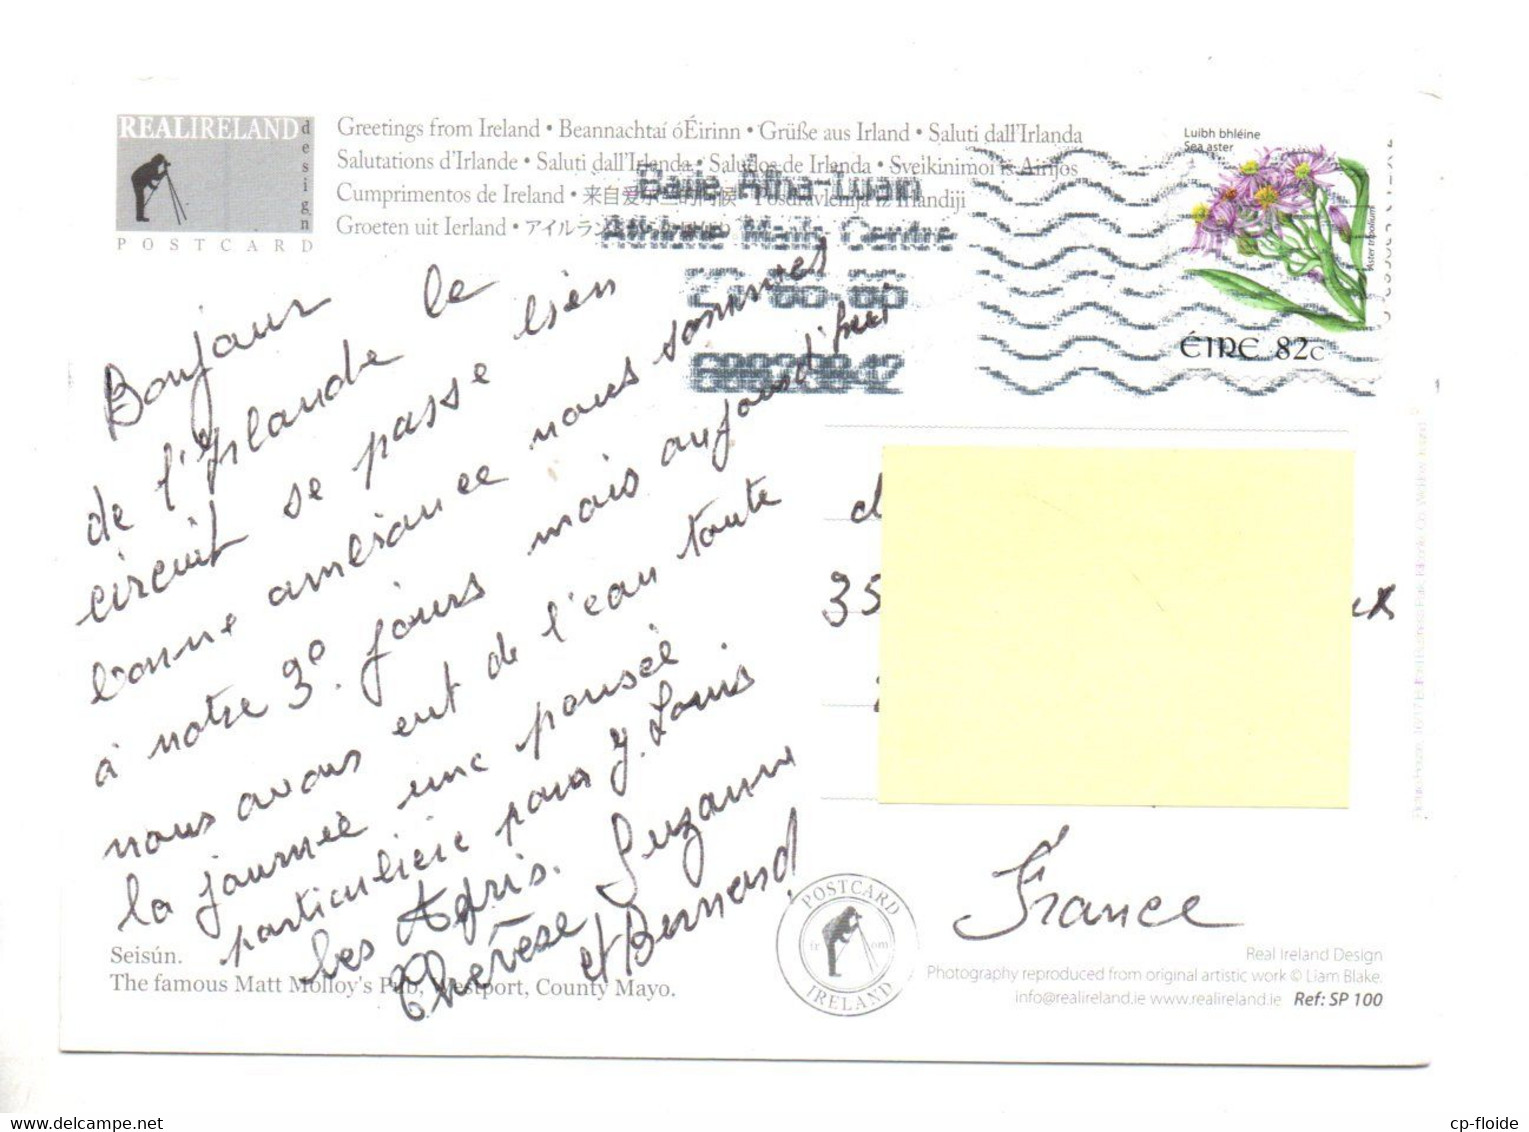 REALIRELAND
design
POSTCARD
Greetings from Ireland • Beannachtaí óÉirinn • Grüße aus Irland • Saluti dall'Irlanda
Salutations d'Irlande • Saluti dall'Irlanda • Saludos de Irlanda • Sveikinimoi is Airijos
Cumprimentos de Ireland • 来自爱尔兰的问候 • Posdravlenija iz Irlandiji
Groeten uit Ierland • アイルラン
Baile Átha-Luain
Athlone Mails Centre
Luibh bhléine
Sea aster
Aster tripolium
ÉIRE 82c
Bonjour
de l'Irlande le
circuit se passe bien
bonne ambiance nous sommes
à notre 3° jours mais aujourd'hui
nous avons eut de l'eau toute
la journée une pensée
particulière pour J. Louis
Thérèse Suzanne
et Bernard
d
35
ux
France
Seisún.
The famous Matt Molloy's Pub, Westport, County Mayo.
POSTCARD
from
IRELAND
Real Ireland Design
Photography reproduced from original artistic work © Liam Blake.
info@realireland.ie www.realireland.ie Ref: SP 100
cp-floide
www.delcampe.net